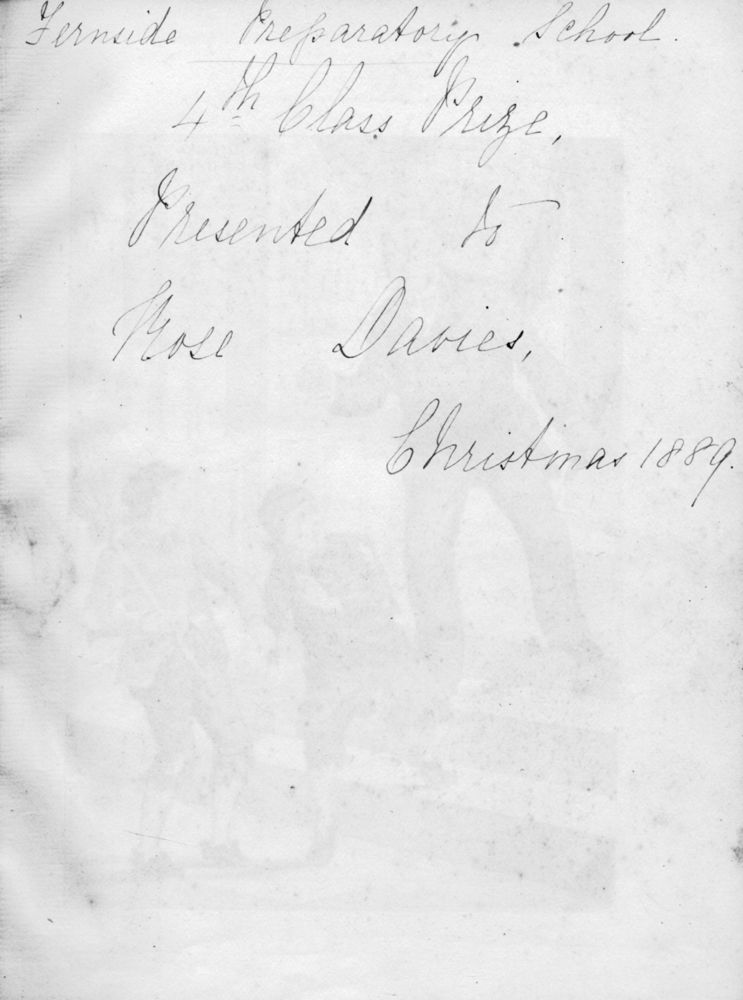 Fernside Preparatory School.
4th Class Prize,
Presented to
Rose Davies,
Christmas 1889.